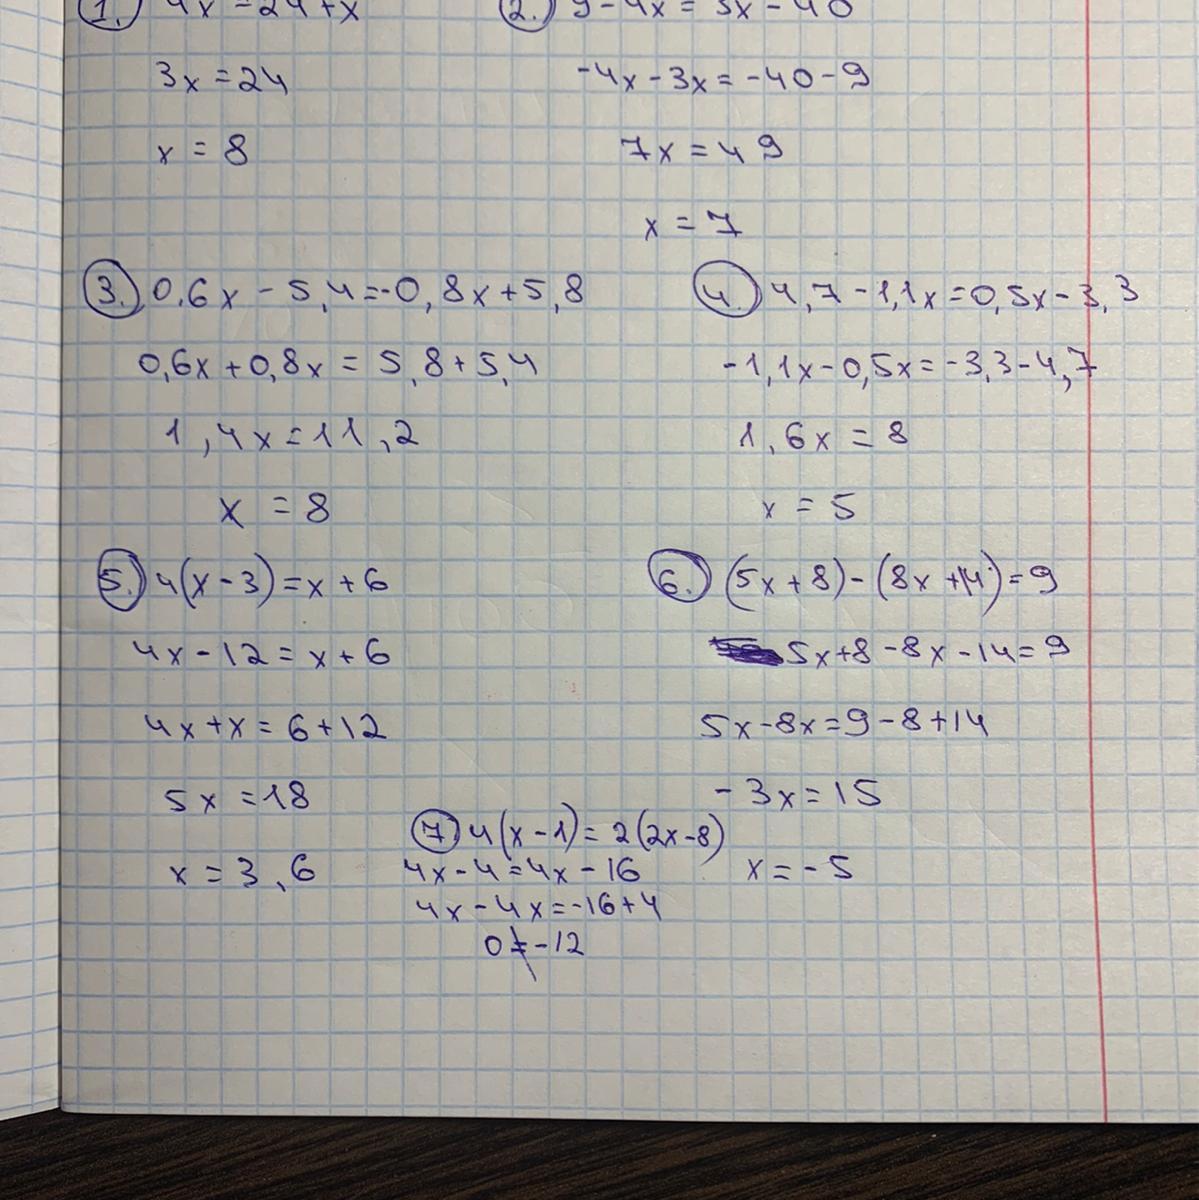 1. 4x = 24 + x
3x = 24
x = 8
2. 9 - 4x = 3x - 40
-4x - 3x = -40 - 9
7x = 49
x = 7
3. 0,6x - 5,4 = -0,8x + 5,8
0,6x + 0,8x = 5,8 + 5,4
1,4x = 11,2
x = 8
4. 4,7 - 1,1x = 0,5x - 3,3
-1,1x - 0,5x = -3,3 - 4,7
1,6x = 8
x = 5
5. 4(x - 3) = x + 6
4x - 12 = x + 6
4x + x = 6 + 12
5x = 18
x = 3,6
6. (5x + 8) - (8x + 14) = 9
5x + 8 - 8x - 14 = 9
5x - 8x = 9 - 8 + 14
-3x = 15
x = -5
7 4(x - 1) = 2(2x - 8)
4x - 4 = 4x - 16
4x - 4x = -16 + 4
0 ≠ -12